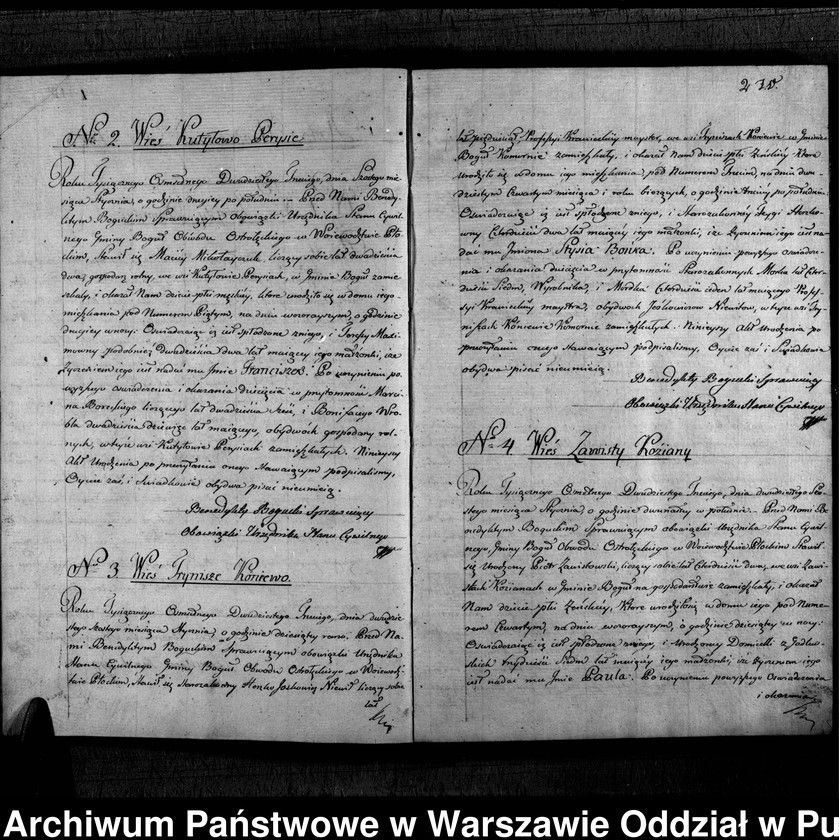 Nº 2 Wieś Kutyłowo Perysie
Roku Tysiącznego Ośmsetnego Dwudziestego Trzeciego, dnia Szostego mie-
siąca Stycznia, o godzinie drugiey po południu. Przed Nami Bene-
dyktym Boguckim Sprawuiącym Obowiązki Urzędnika Stanu Cywil-
nego Gminy Boguł Obwodu Ostrołęckiego w Woiewodztwie Pło-
ckim, Stawił się Maciey Mikołayczuk liczący sobie lat dwadzieścia
dwa, gospodarz rolny, we wsi Kutyłowie Perysiach, w Gminie Boguł zamie-
szkały, i okazał Nam dziecie płci męzkiey, które urodziło się w domu iego
mieszkania pod Numerem Piątym, na dniu wczorayszym, o godzinie
drugiey w nocy. Oświadczaiąc iż iest spłodzone z niego, i Teresy Maxi-
mowny podobnież dwadzieścia dwa lat maiącey iego małżonki, i że
życzeniem iego iest nadać mu Jmie Franciszek. Po uczynieniu po-
wyższego oświadczenia i okazania dziecięcia w przytomności Marci-
na Boreckiego liczącego lat dwadzieścia trzy, i Bonifacego Wro-
bla dwadzieścia dziewięć lat maiącego, obydwoch gospodarzy rol-
nych, w teyże wsi Kutyłowie Perysiach zamieszkałych. Ninieyszy
Akt Urodzenia po przeczytaniu onego Stawaiącym podpisaliśmy,
Oyciec zaś, i Świadkowie obydwa pisać nieumieią.
Benedykty Bogucki Sprawuiący
Obowiązki Urzędnika Stanu Cywilnego
Nº 3 Wieś Trynisze Koniewo.
Roku Tysiącznego Ośmsetnego Dwudziestego Trzeciego, dnia dwudzie-
stego szostego miesiąca Stycznia, o godzinie dziesiątey rano. Przed Na-
mi Benedyktym Boguckim Sprawuiącym obowiązki Urzędnika
Stanu Cywilnego Gminy Boguł Obwodu Ostrołęckiego w Woiewodz-
twie Płockim, Stawił się Starozakonny Herszko Joskowicz Niewit liczący sobie
lat
210.
lat pięćdziesiąt, Professyi Krawieckiey mayster, we wsi Tryniszach Koniewie w Gminie
Boguł Komornie zamieszkały, i okazał Nam dziecie płci żeńskiey które
urodziło się w domu iego mieszkania, pod Numerem Trzecim, na dniu dwu-
dziestym Czwartym miesiąca i roku bieżących, o godzinie trzeciey po południu.
Oświadczaiąc iż iest spłodzone z niego, i Starozakonney Feygi Herszko-
wny Czterdzieści dwa lat maiącey iego małżonki, i że życzeniem iego iest na-
dać mu Jmiona Stysia Boirka. Po uczynieniu powyższego oświadcze-
nia i okazania dziecięcia w przytomności Starozakonnych Moszka lat Czter-
dzieści Siedm, Wyrobnika, i Mordka Czterdzieści ieden lat maiącego Profes-
syi Krawieckiey maystra, obydwoch Jeskowiczow Niewitow, w teyże wsi Try-
niszach Koniewie Komornie zamieszkałych. Ninieyszy Akt Urodzenia po
przeczytaniu onego Stawaiącym podpisaliśmy, Oyciec zaś i Świadkowie
obydwa pisać nieumieią.
Benedykty Bogucki Sprawuiący
Obowiązki Urzędnika Stanu Cywilnego
Nº 4 Wieś Zawisty Koziany
Roku Tysiącznego Ośmsetnego Dwudziestego Trzeciego, dnia dwudziestego Szo-
stego miesiąca Stycznia, o godzinie dwunastey w południe. Przed Nami Be-
nedyktym Boguckim Sprawuiącym obowiązki Urzędnika Stanu Cywil-
nego, Gminy Boguł Obwodu Ostrołęckiego w Woiewodztwie Płockim Stawił
się Urodzony Piotr Zawistowski, liczący sobie lat Czterdzieści dwa, we wsi Zawi-
stach Kozianach w Gminie Boguł na gospodarstwie zamieszkały, i okazał
Nam dziecie płci żeńskiey, które urodziło się w domu iego pod Nume-
rem Czwartym, na dniu wczorayszym, o godzinie dziesiątey w nocy.
Oświadczaiąc iż iest spłodzone z niego, i Urodzoney Domicelli z Godlew-
skich trzydzieści Siedm lat maiącey iego małżonki, i że życzeniem iego
iest nadać mu Jmie Paula. Po uczynieniu powyższego Oświadczenia
i okazania
Archiwum Państwowe w Warszawie Oddział w Pu